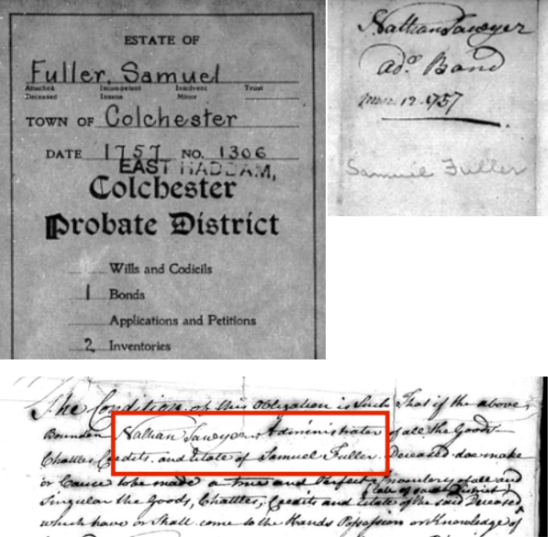 ESTATE OF
Fuller, Samuel
Attached Incompetent Insolvent Trust
Deceased Insane Minor
TOWN OF Colchester
DATE 1757 NO. 1306
EAST HADDAM,
Colchester
Probate District
Wills and Codicils
1 Bonds
Applications and Petitions
2 Inventories
Nathan Sawyer
ado Bond
12. 1757
Samuel Fuller
The Condition of this Obligation is Such That if the above
Bounden Nathan Sawyer, Administrator of all the Goods
Chattles, Credits and Estate of Samuel Fuller Deceased doe make
or Cause to be made a true and Perfect Inventory of all and
Singular the Goods, Chattles, Credits and Estate of the said Deceased
which have or Shall come to the Hands Possession or Knowledge of